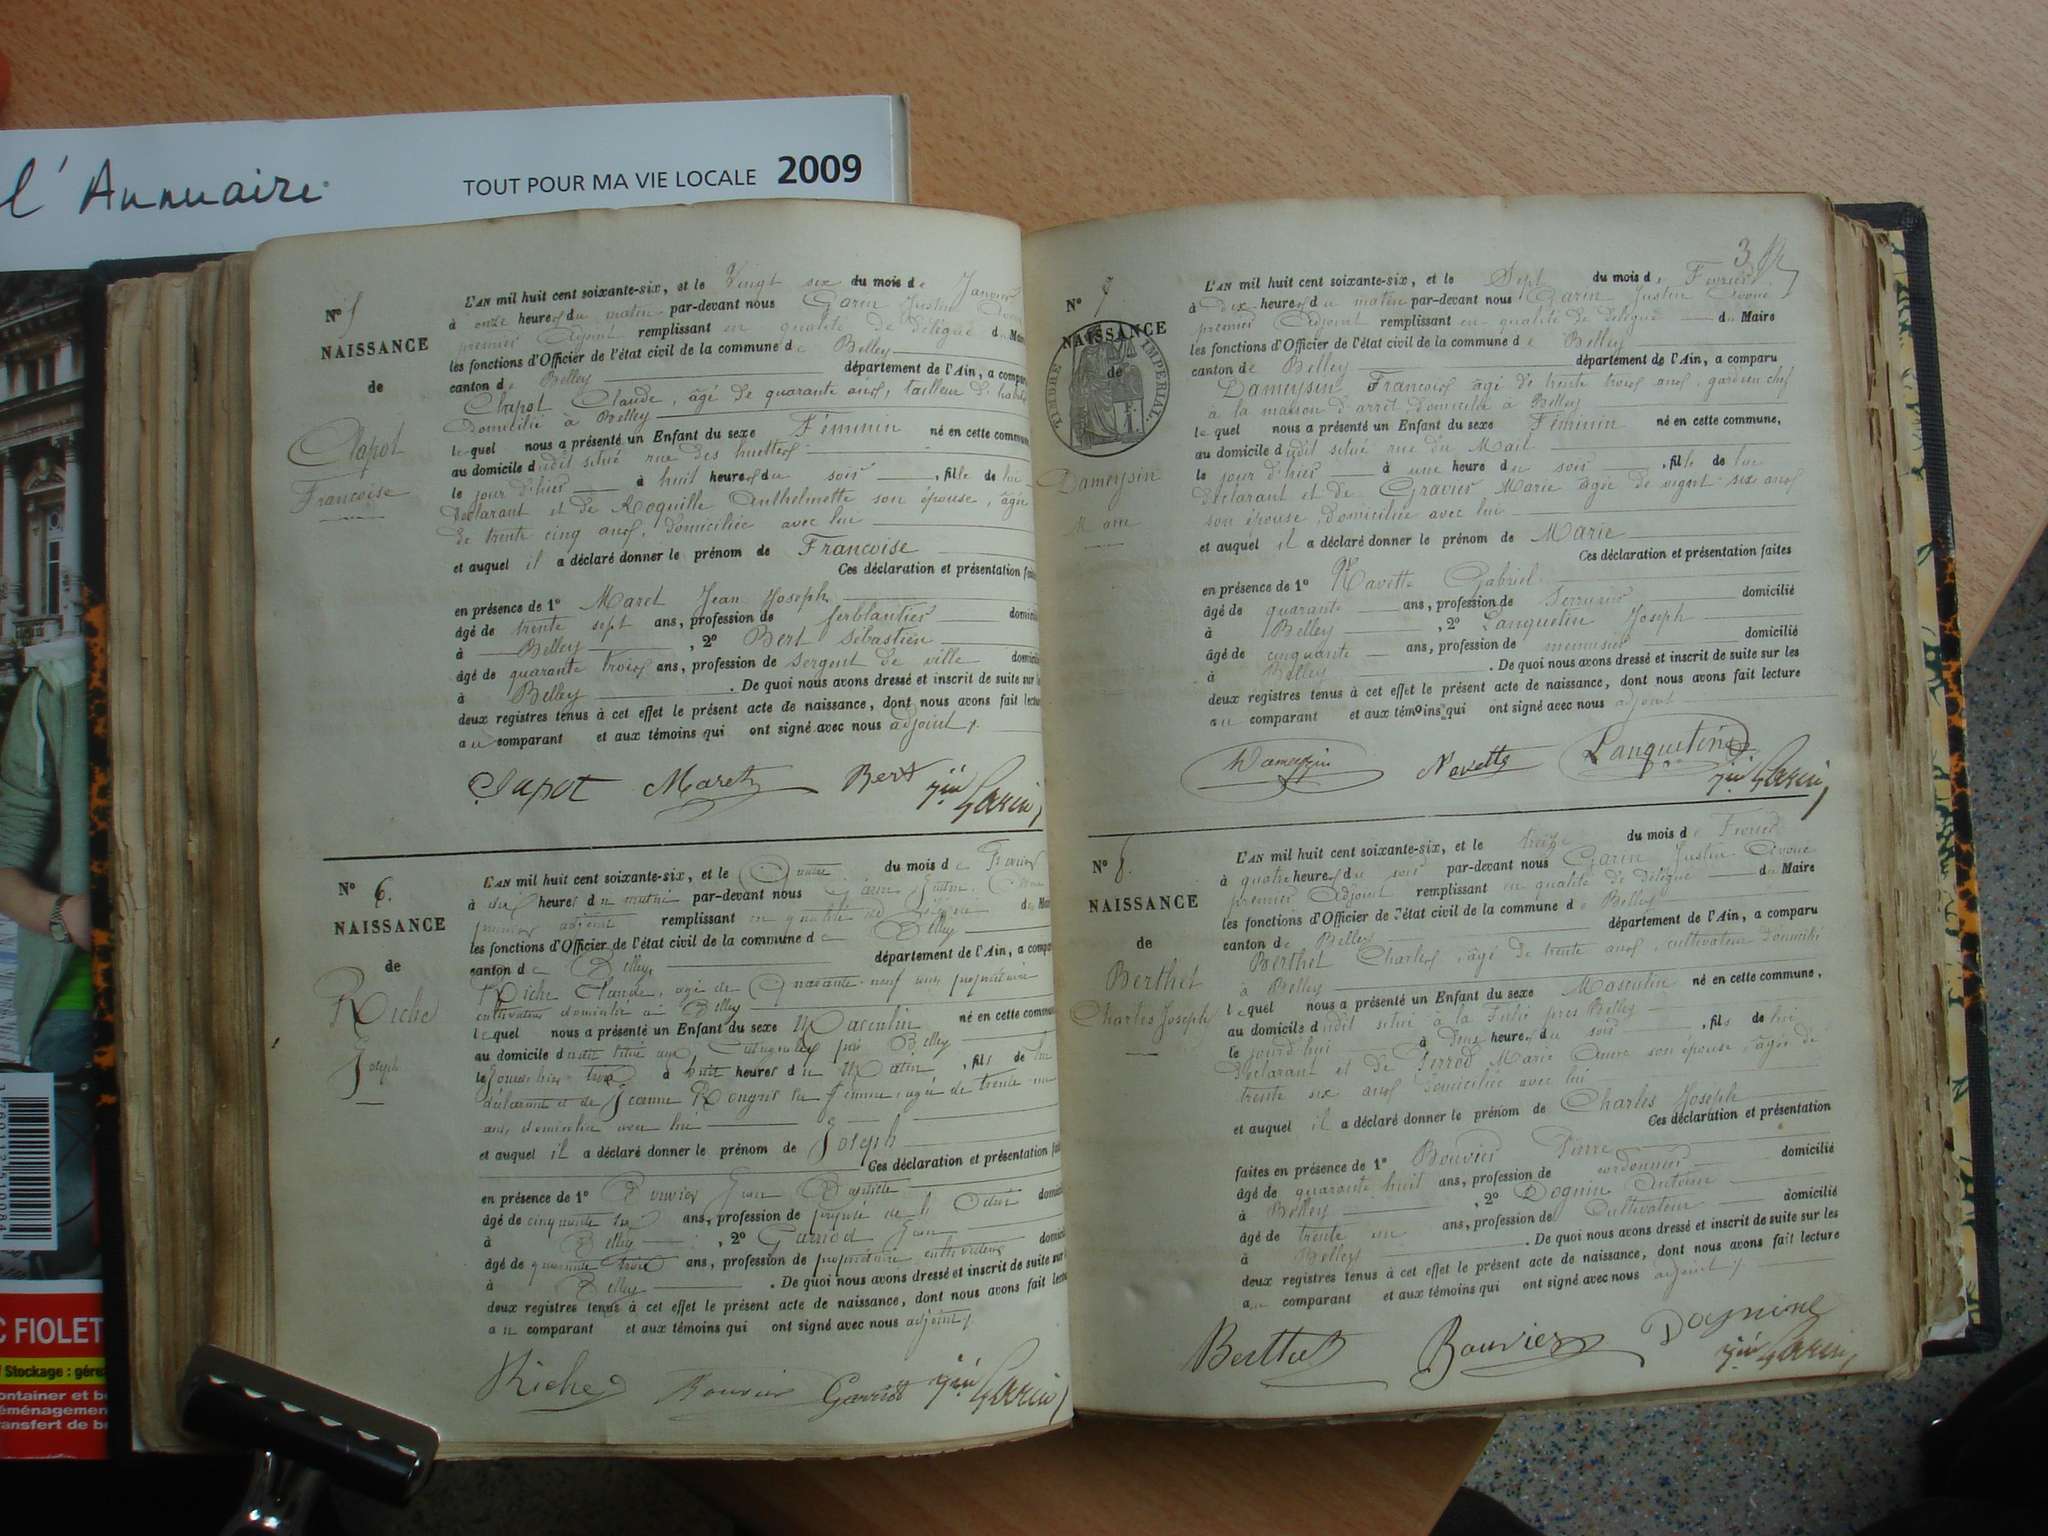 l'Annuaire
TOUT POUR MA VIE LOCALE 2009
C FIOLET
/ Stockage : gérez
ontainer et b
éménagement
ansfert de b
N° 5
NAISSANCE
de
Clapot
Francoise
L'AN mil huit cent soixante-six, et le Vingt six du mois de Janvier
à onze heures du matin par-devant nous Garin Justin Avoué
premier Adjoint remplissant en qualité de délégué du Maire
les fonctions d'Officier de l'état civil de la commune de Belley
canton de Belley département de l'Ain, a comparu
Clapot Claude, âgé de quarante ans, tailleur d'habits
Domicilié à Belley
lequel nous a présenté un Enfant du sexe Féminin né en cette commune,
au domicile dudit situé rue des huettes
le jour d'hier à huit heures du soir, fille de lui
Déclarant et de Roquille Anthelmette son épouse, âgée
de trente cinq ans, domiciliée avec lui
et auquel il a déclaré donner le prénom de Francoise
Ces déclaration et présentation faites
en présence de 1° Maret Jean Joseph
âgé de trente sept ans, profession de ferblantier domicilié
à Belley, 2° Bert Sébastien
âgé de quarante trois ans, profession de sergent de ville domicilié
à Belley. De quoi nous avons dressé et inscrit de suite sur les
deux registres tenus à cet effet le présent acte de naissance, dont nous avons fait lecture
au comparant et aux témoins qui ont signé avec nous adjoint
Clapot Maret Bert Jin Garin
N° 6.
NAISSANCE
de
Riche
Joseph
L'AN mil huit cent soixante-six, et le Quatre du mois de Fevrier
à dix heures du matin par-devant nous Garin Justin Avoué
premier adjoint remplissant en qualité de délégué du Maire
les fonctions d'Officier de l'état civil de la commune de Belley
canton de Belley département de l'Ain, a comparu
Riche Claude, agé de Quarante-neuf ans, propriétaire
cultivateur domicilié à Belley
lequel nous a présenté un Enfant du sexe Masculin né en cette commune
au domicile dudit situé aux près Belley
le jour d'hier trois à huit heures du Matin, fils de lui
déclarant et de Jeanne Rongris sa femme, agée de trente-un
ans, domiciliée avec lui
et auquel il a déclaré donner le prénom de Joseph
Ces déclaration et présentation faites
en présence de 1° Bouvier Jean Baptiste
âgé de cinquante six ans, profession de domicilié
à Belley, 2° Garriod Jean
âgé de quarante trois ans, profession de propriétaire cultivateur domicilié
à Belley. De quoi nous avons dressé et inscrit de suite sur les
deux registres tenus à cet effet le présent acte de naissance, dont nous avons fait lecture
au comparant et aux témoins qui ont signé avec nous adjoint
Riche Bouvier Garriod Jin Garin
3
N° 7
NAISSANCE
de
TIMBRE IMPERIAL.
Dameysin
Marie
L'AN mil huit cent soixante-six, et le Sept du mois de Fevrier
à dix heures du matin par-devant nous Garin Justin Avoué
premier Adjoint remplissant en qualité de délégué du Maire
les fonctions d'Officier de l'état civil de la commune de Belley
canton de Belley département de l'Ain, a comparu
Dameysin François âgé de trente trois ans, gardien chef
à la maison d'arrêt, domicilié à Belley
lequel nous a présenté un Enfant du sexe Féminin né en cette commune,
au domicile dudit situé rue du Mail
le jour d'hier à une heure du soir, fille de lui
Déclarant et de Gravier Marie âgée de vingt-six ans
son épouse, domiciliée avec lui
et auquel il a déclaré donner le prénom de Marie
Ces déclaration et présentation faites
en présence de 1° Navette Gabriel
âgé de quarante ans, profession de Serrurier domicilié
à Belley, 2° Lanquetin Joseph
âgé de cinquante ans, profession de menuisier domicilié
à Belley. De quoi nous avons dressé et inscrit de suite sur les
deux registres tenus à cet effet le présent acte de naissance, dont nous avons fait lecture
au comparant et aux témoins qui ont signé avec nous adjoint
Dameysin Navette Lanquetin Jin Garin
N° 8.
NAISSANCE
de
Berthet
Charles Joseph
L'AN mil huit cent soixante-six, et le treize du mois de Fevrier
à quatre heures du soir par-devant nous Garin Justin Avoué
premier Adjoint remplissant en qualité de délégué du Maire
les fonctions d'Officier de l'état civil de la commune de Belley
canton de Belley département de l'Ain, a comparu
Berthet Charles, âgé de trente ans, cultivateur domicilié
à Belley
lequel nous a présenté un Enfant du sexe Masculin né en cette commune,
au domicile dudit situé à la près Belley
le jourd'hui à Deux heures du soir, fils de lui
Déclarant et de Perrod Marie son épouse, âgée de
trente six ans domiciliée avec lui
et auquel il a déclaré donner le prénom de Charles Joseph
Ces déclaration et présentation
faites en présence de 1° Bouvier Pierre
âgé de quarante huit ans, profession de cordonnier domicilié
à Belley, 2° Dognin Antoine
âgé de trente un ans, profession de Cultivateur domicilié
à Belley. De quoi nous avons dressé et inscrit de suite sur les
deux registres tenus à cet effet le présent acte de naissance, dont nous avons fait lecture
au comparant et aux témoins qui ont signé avec nous adjoint
Berthet Bouvier Jin Garin